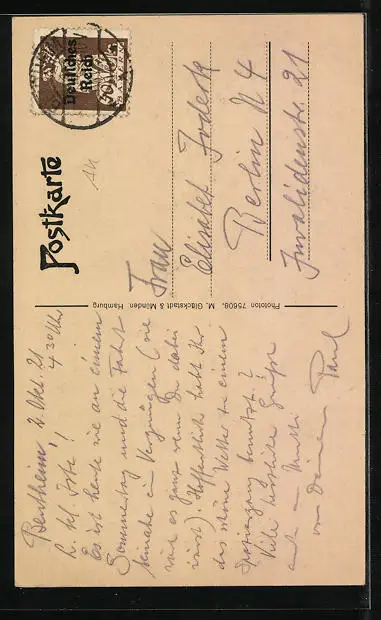 Deutsches
Reich
Postkarte
An
Frau
Elisabet
Berlin N 4
Invalidenstr. 21
Phototon 75608. M. Glückstadt & Münden. Hamburg
Bentheim, 2. Okt. 21
4 30 Uhr
Es ist heute wie an einem
Sommertag und die Fahrt
beinahe ein Vergnügen (sie
wär es ganz wenn Du dabei
wärst). Hoffentlich habt Ihr
das schöne Wetter zu einem
Spaziergang benutzt?
Viele herzliche Grüße
auch an Mutti
von Deinem Paul